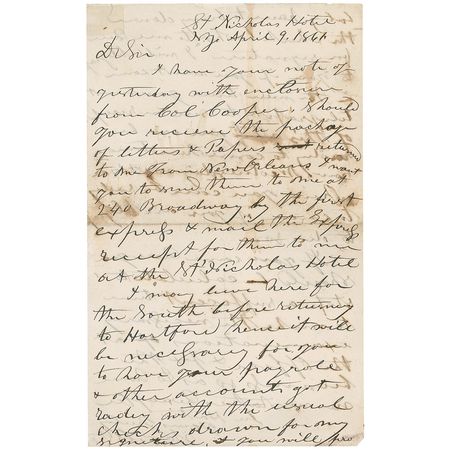 St Nicholas Hotel
Ny. April 9. 1861
Dr Sir
I have your note of
yesterday with enclosure
from Col Cooper, Should
you receive the package
of letters & Papers returned
to me from New Orleans I want
you to send them to me at
240 Broadway by the first
express & mail the Express
receipt for them to me
at the St Nicholas Hotel
I may leave here for
the South before returning
to Hartford hence it will
be necessary for you
to have your payroll
& other accounts got
radey with the usual
checks drawn for my
signature, & you will